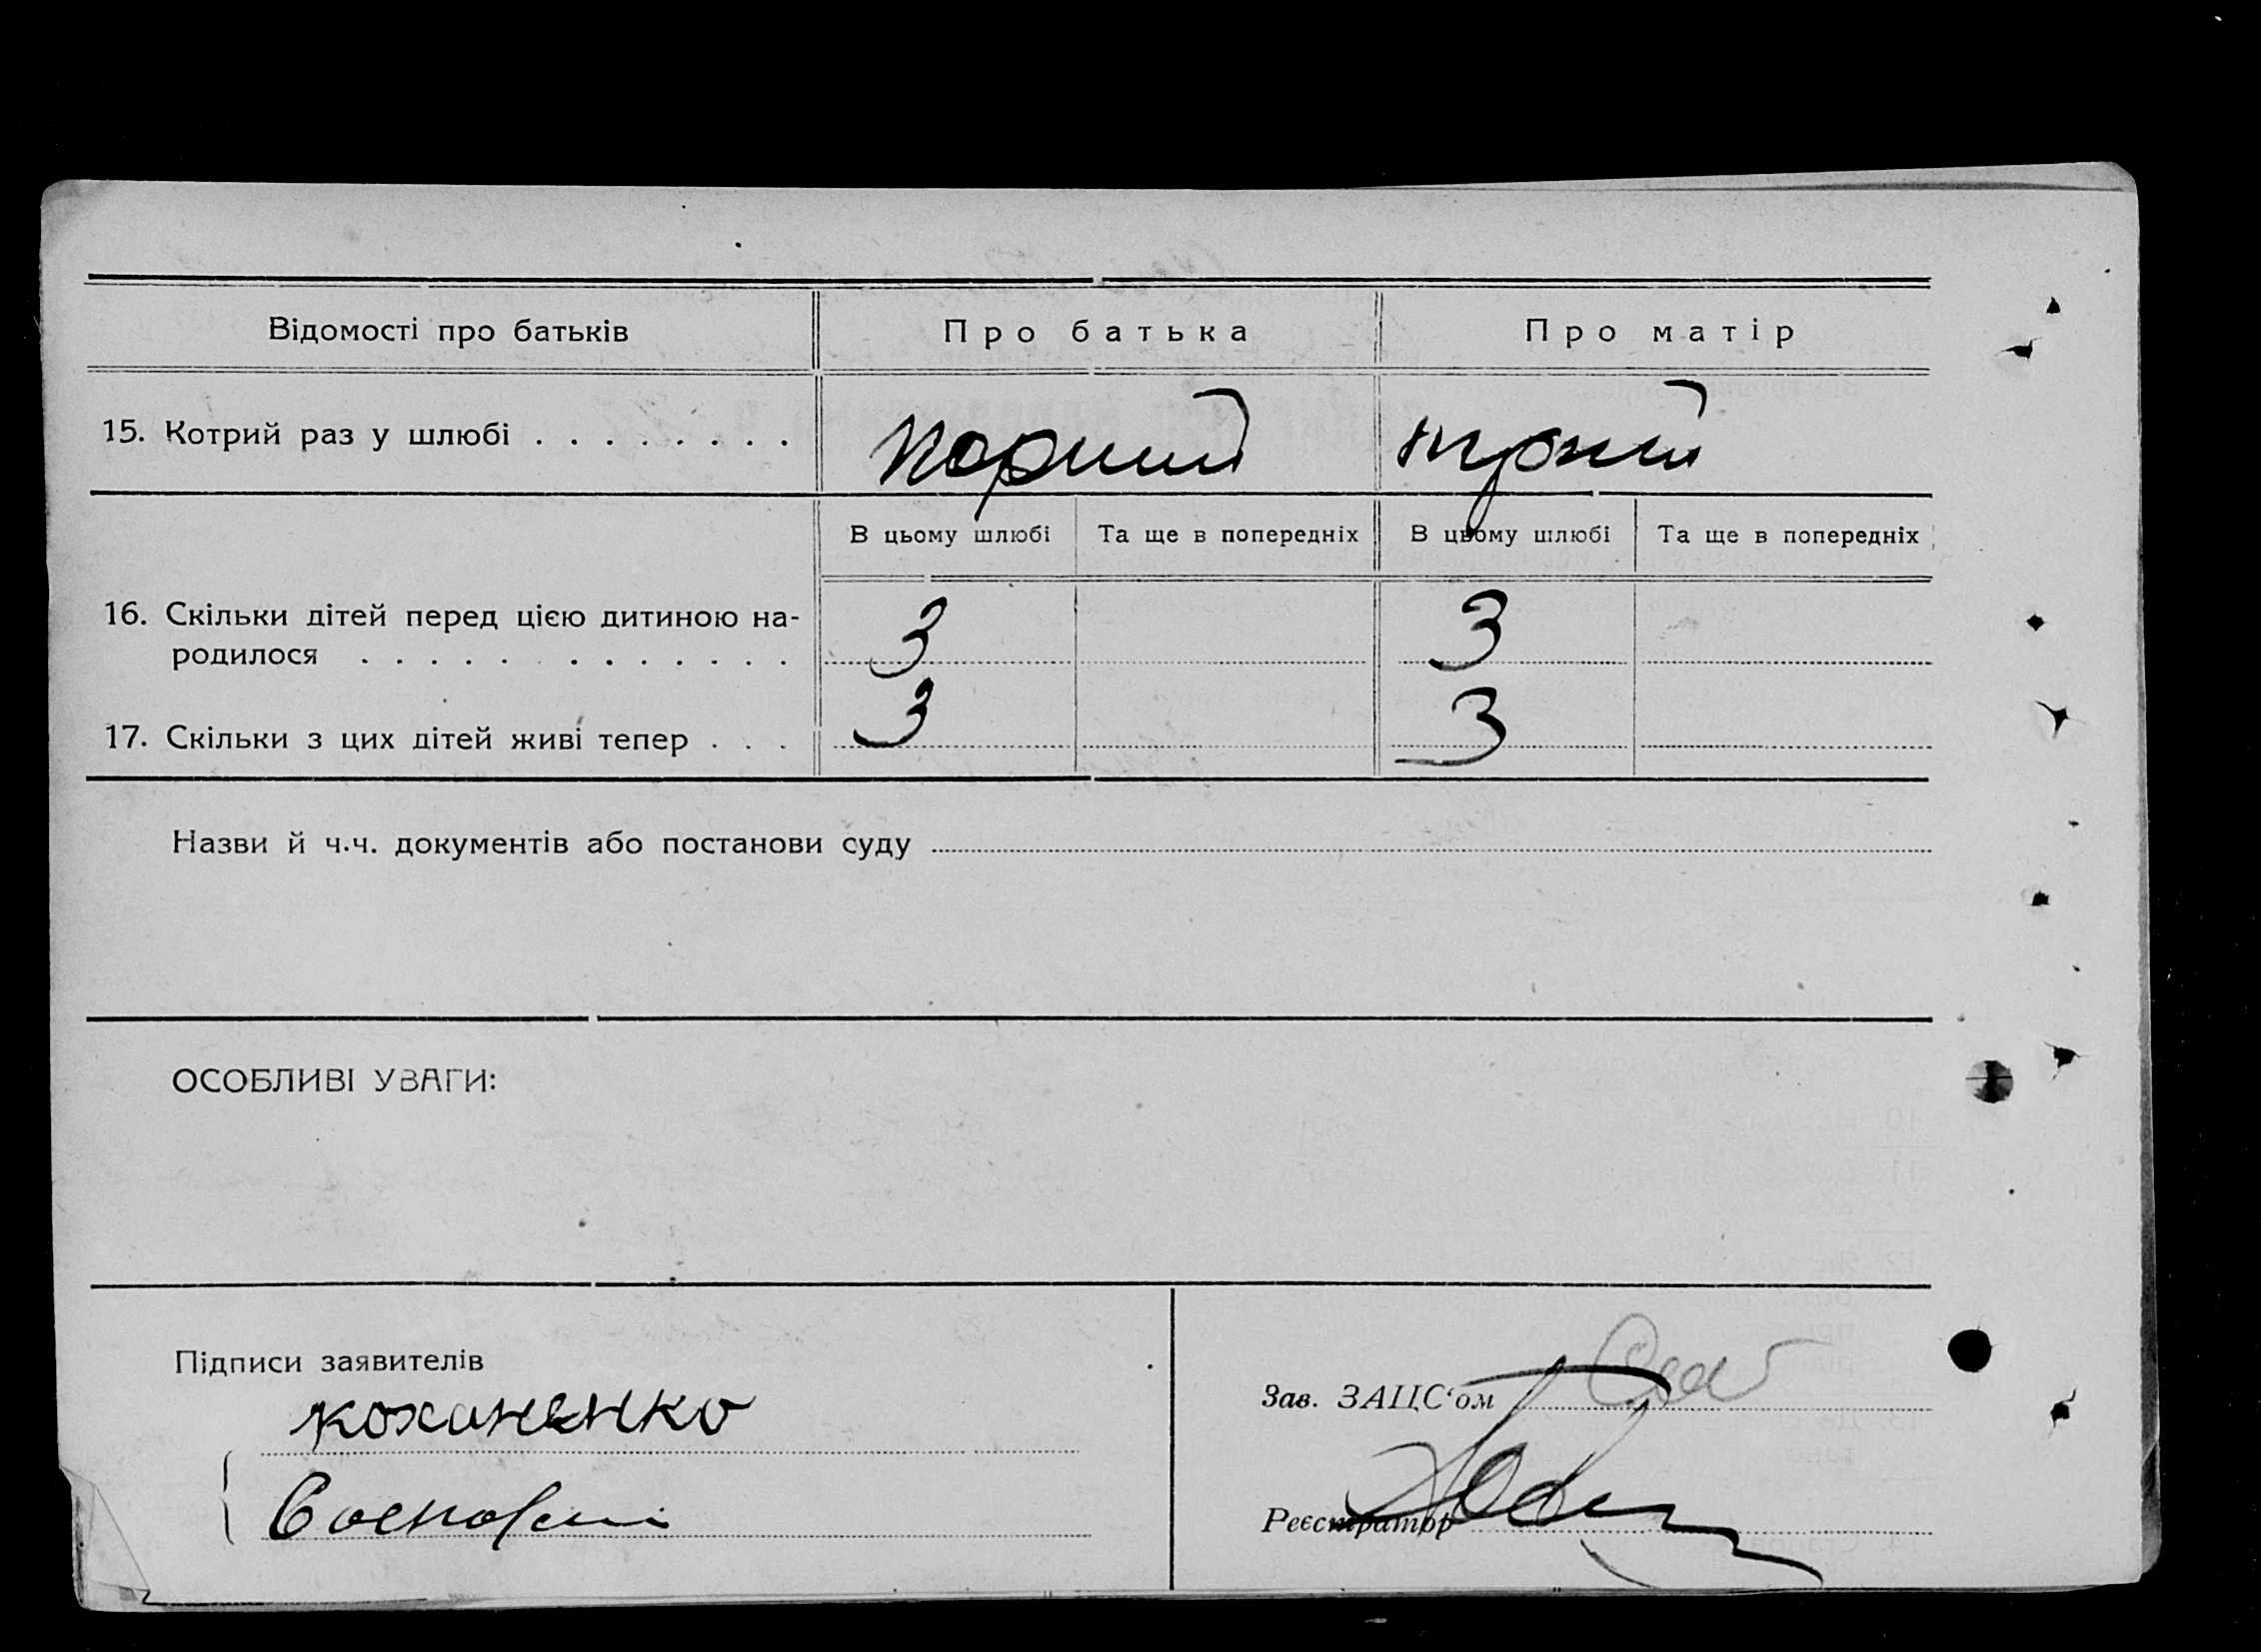 Відомості про батьків
Про батька
Про матір
15. Котрий раз у шлюбі . . . . . . . .
В цьому шлюбі
Та ще в попередніх
В цьому шлюбі
Та ще в попередніх
16. Скільки дітей перед цією дитиною на-
родилося . . . . . . . . . . . . .
3
3
17. Скільки з цих дітей живі тепер . . .
3
3
Назви й ч.ч. документів або постанови суду
ОСОБЛИВІ УВАГИ:
Підписи заявителів
Зав. ЗАЦС‘ом
коханенко
Реєстратор